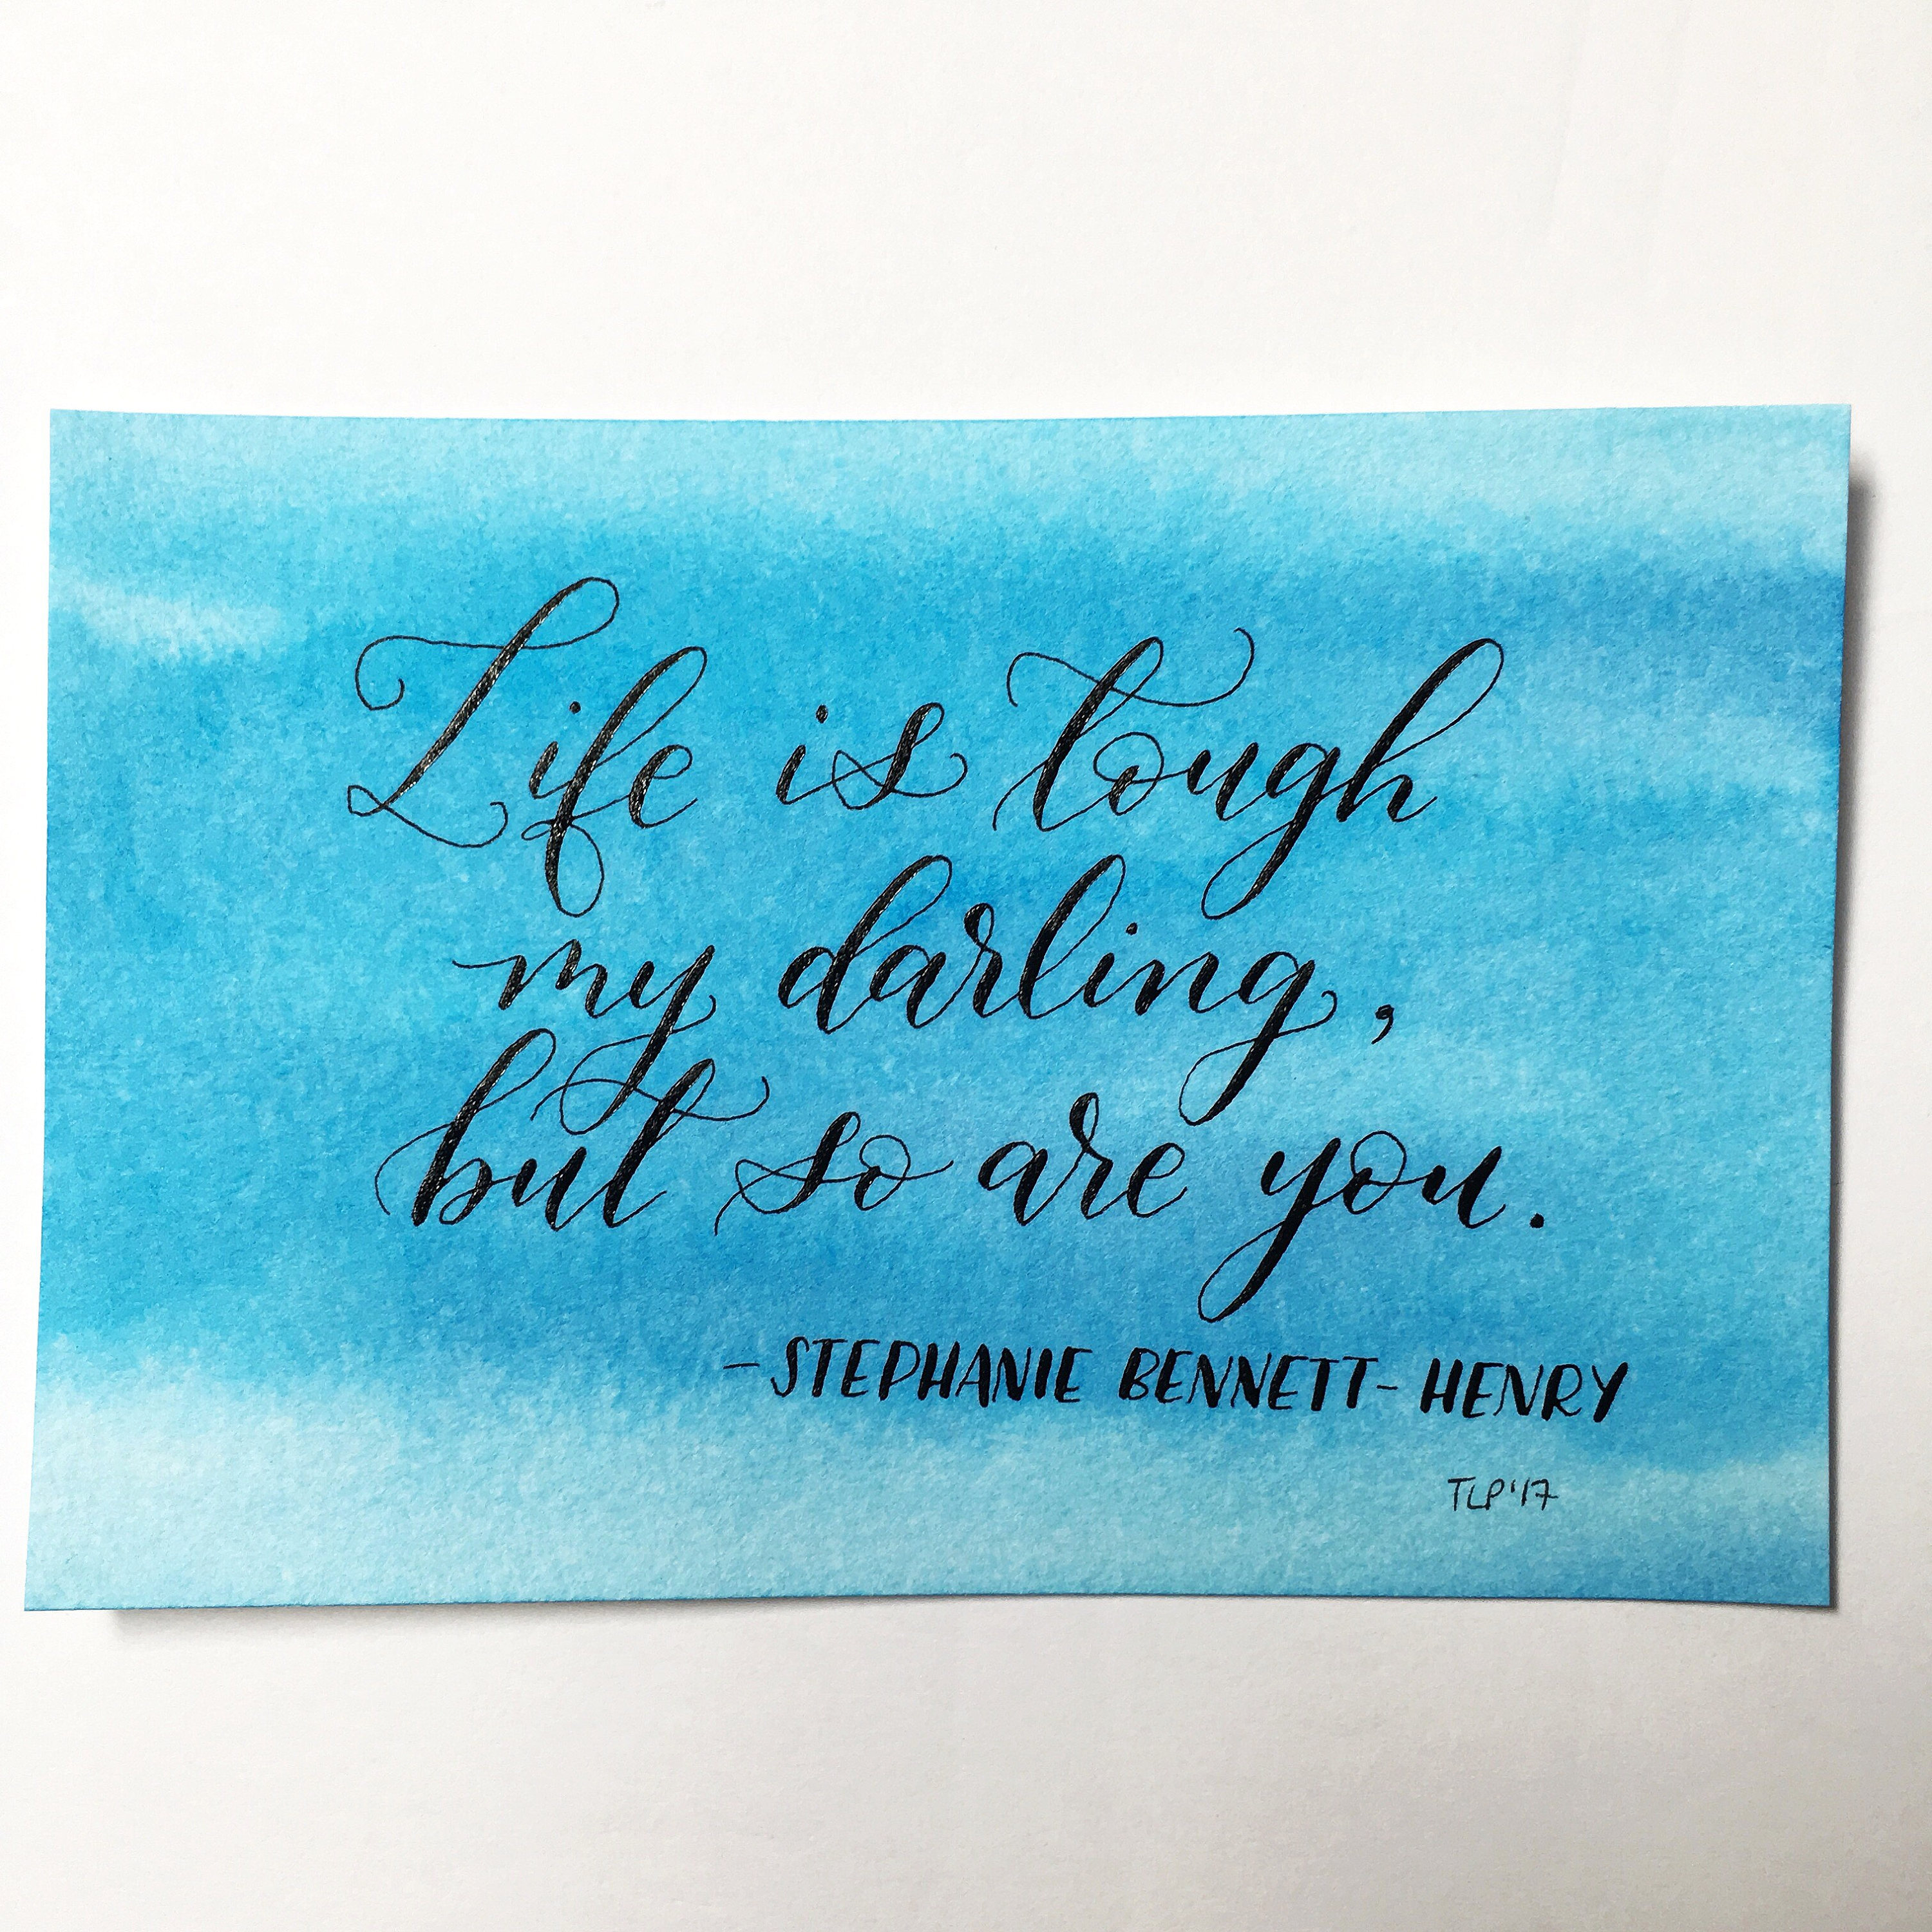 Life is tough
my darling,
but so are you.
-STEPHANIE BENNETT-HENRY
TLP'17